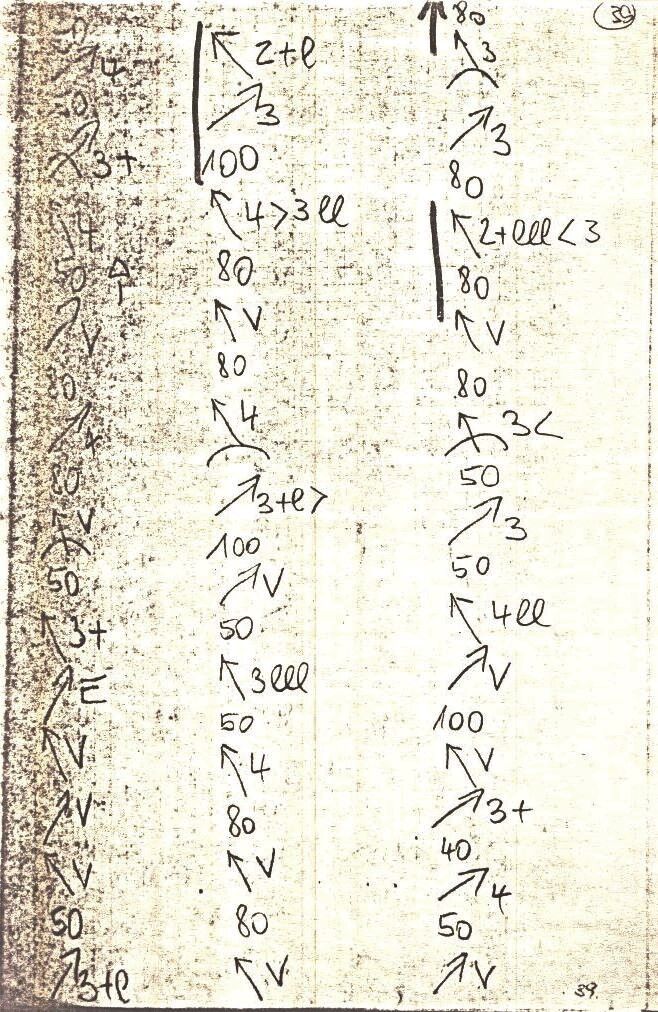 50
4
50
3+
4
50
V
80
4
80
V
50
3+
E
V
V
V
50
3+l
2+l
3
100
4>3ll
80
V
80
4
3+l>
100
V
50
3lll
50
4
80
V
80
V
39
80
3
3
80
2+lll<3
80
V
80
3<
50
3
50
4ll
V
100
V
3+
40
4
50
V
39